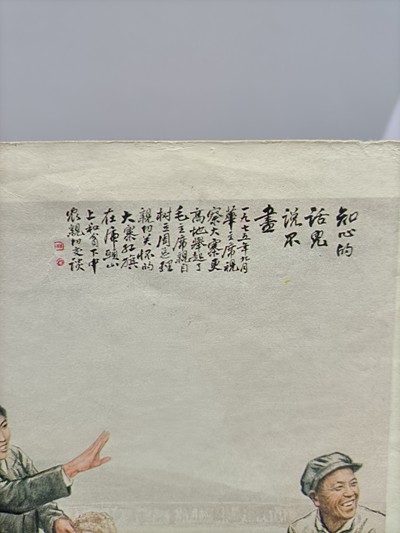 知心的
话儿
说不
盡
一九七五年九月
華主席視
察大寨更
高地舉起了
毛主席親自
樹立周总理
親切关怀的
大寨红旗
在虎頭山
上和贫下中
农親切交談